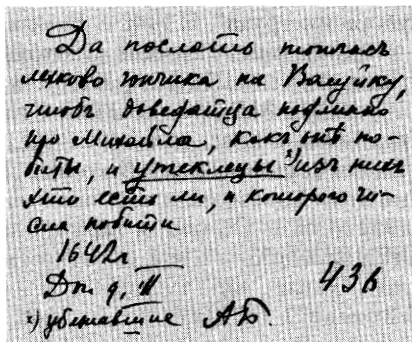 Да послать тотчасъ
лехково гончика на Валуйку,
чтобъ доведатца подлинно
про Михайла, какъ онѣ по-
биты, и утеклецы х) изъ нихъ
хто есть ли, и которого чи-
сла побити
1642 г
Дп. 9, III
436
х) убежавшие АБ.